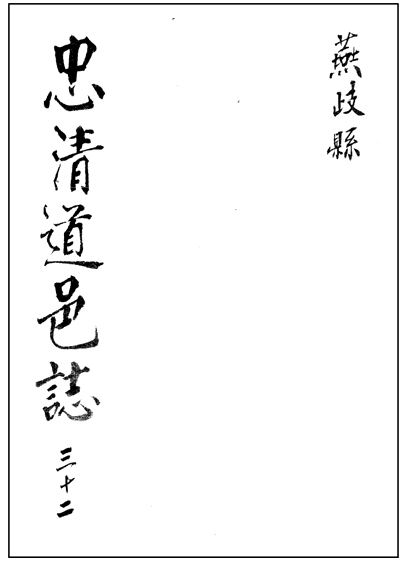 燕歧縣
忠清道邑誌 三十二